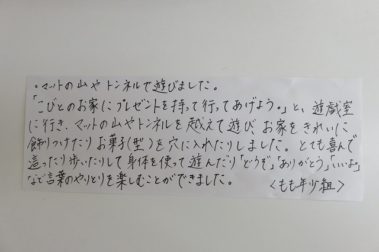 ・マットの山やトンネルで遊びました。
「こびとのお家にプレゼントを持って行ってあげよう。」と、遊戯室
に行き、マットの山やトンネルを越えて遊び お家をきれいに
飾りつけたりお菓子(型)を穴に入れたりしました。とても喜んで
這ったり歩いたりして身体を使って遊んだり「どうぞ」「ありがとう」「いいよ」
など言葉のやりとりを楽しむことができました。 〈もも年少組〉